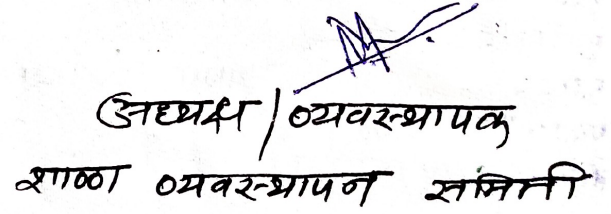 अध्यक्ष / व्यवस्थापक
शाळा व्यवस्थापन समिती